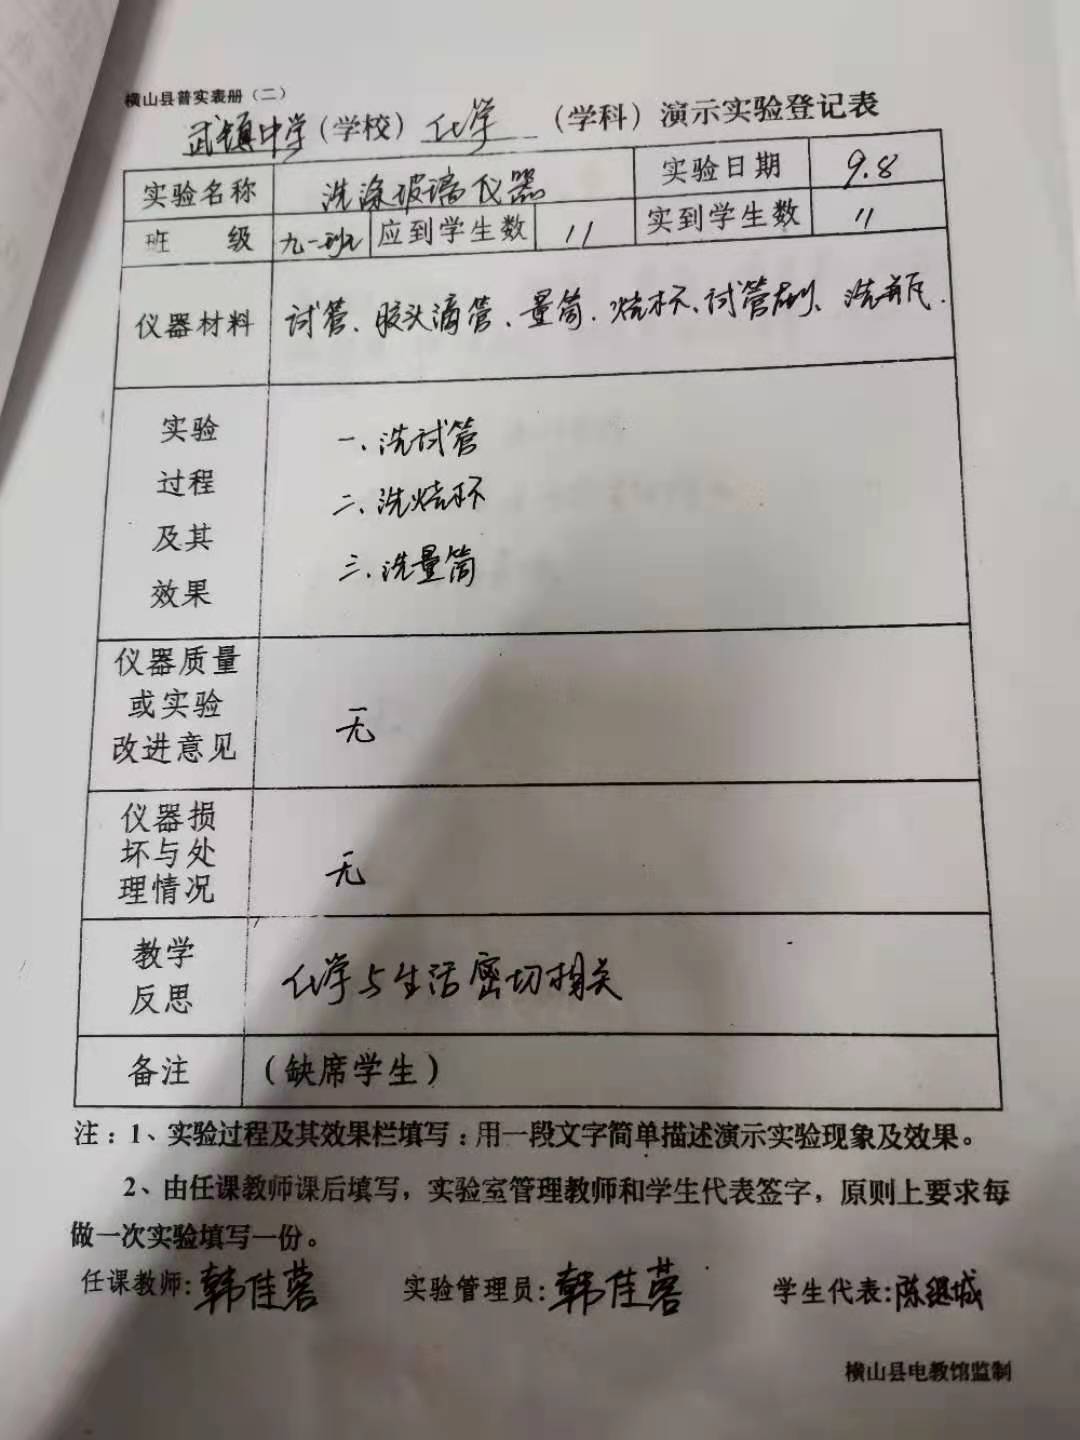 横山县普实表册（二）
武镇中学（学校）化学（学科）演示实验登记表
实验名称 洗涤玻璃仪器 实验日期 9.8
班 级 九一班 应到学生数 11 实到学生数 11
仪器材料 试管、胶头滴管、量筒、烧杯、试管刷、洗瓶.
实验
过程
及其
效果
一、洗试管
二、洗烧杯
三、洗量筒
仪器质量
或实验
改进意见
无
仪器损
坏与处
理情况
无
教学
反思
化学与生活密切相关
备注 （缺席学生）
注：1、实验过程及其效果栏填写：用一段文字简单描述演示实验现象及效果。
2、由任课教师课后填写，实验室管理教师和学生代表签字，原则上要求每
做一次实验填写一份。
任课教师:韩佳蓉 实验管理员:韩佳蓉 学生代表:陈继城
横山县电教馆监制